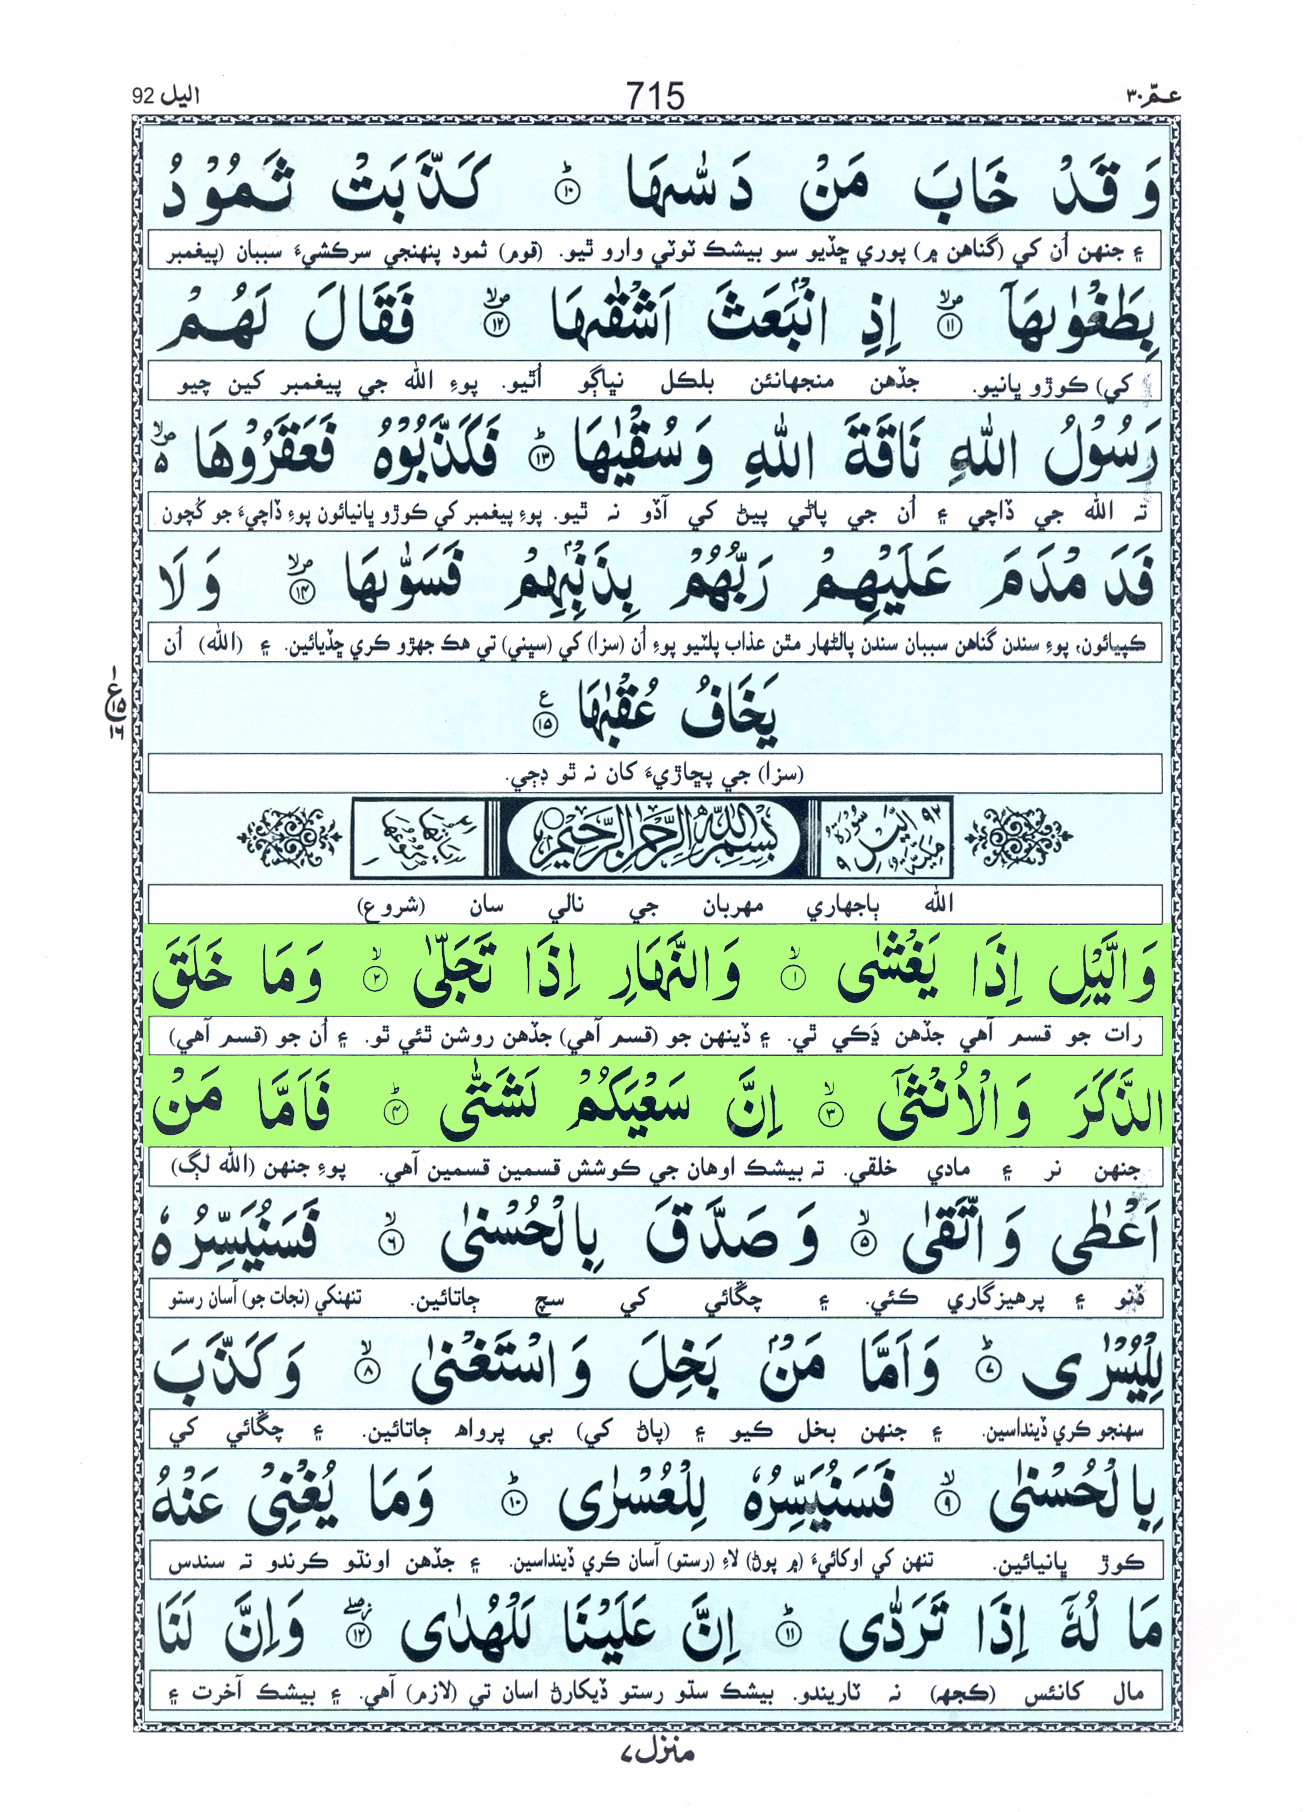 عمّ ۳۰ 715 اليل 92
وَ قَدۡ خَابَ مَنۡ دَسّٰىهَا ؕ‏﴿۱۰﴾ كَذَّبَتۡ ثَمُوۡدُ
۽ جنھن اُن کي (گناھن ۾) پوري ڇڏيو سو بيشڪ ٽوٽي وارو ٿيو. (قوم) ثمود پنھنجي سرڪشيءَ سببان (پيغمبر
بِطَغۡوٰٮهَآ ۙ‏﴿۱۱﴾ اِذِ انۡۢبَعَثَ اَشۡقٰٮهَا ۙ‏﴿۱۲﴾ فَقَالَ لَهُمۡ
کي) ڪوڙو ڀانيو. جڏھن منجھانئن بلڪل نڀاڳو اُٿيو. پوءِ الله جي پيغمبر کين چيو
رَسُوۡلُ اللّٰهِ نَاقَةَ اللّٰهِ وَ سُقۡيٰهَا ؕ‏﴿۱۳﴾ فَكَذَّبُوۡهُ فَعَقَرُوۡهَا ۙ
تہ الله جي ڏاچي ۽ اُن جي پاڻي پيئڻ کي آڏو نہ ٿيو. پوءِ پيغمبر کي ڪوڙو ڀانيائون پوءِ ڏاچيءَ جو کُچون
فَدَ مۡدَمَ عَلَيۡهِمۡ رَبُّهُمۡ بِذَنۡۢبِهِمۡ فَسَوّٰٮهَا ۙ‏﴿۱۴﴾ وَ لَا
ڪپيائون، پوءِ سندن گناھن سببان سندن پالڻھار مٿن عذاب پلٽيو پوءِ اُن (سزا) کي (سڀني) تي ھڪ جھڙو ڪري ڇڏيائين. ۽ (الله) اُن
يَخَافُ عُقۡبٰهَا ‏﴿۱۵﴾ ع
(سزا) جي پڇاڙيءَ کان نہ ٿو ڊڄي.
۹۲ سُوۡرَةُ الَّيۡلِ مَكِّيَّةٌ ۹ بِسۡمِ اللّٰهِ الرَّحۡمٰنِ الرَّحِيۡمِ اٰيَاتُهَا ۲۱ رُكُوۡعُهَا ۱
الله ٻاجھاري مھربان جي نالي سان (شروع)
وَ الَّيۡلِ اِذَا يَغۡشٰى ۙ‏﴿۱﴾ وَ النَّهَارِ اِذَا تَجَلّٰى ۙ‏﴿۲﴾ وَ مَا خَلَقَ
رات جو قسم آھي جڏھن ڍَڪي ٿي. ۽ ڏينھن جو (قسم آھي) جڏھن روشن ٿئي ٿو. ۽ اُن جو (قسم آھي)
الذَّكَرَ وَ الۡاُنۡثٰٓى ۙ‏﴿۳﴾ اِنَّ سَعۡيَكُمۡ لَشَتّٰى ؕ‏﴿۴﴾ فَاَمَّا مَنۡ
جنھن نر ۽ مادي خلقي. تہ بيشڪ اوھان جي ڪوشش قسمين قسمين آھي. پوءِ جنھن (الله لڳ)
اَعۡطٰى وَ اتَّقٰى ۙ‏﴿۵﴾ وَ صَدَّقَ بِالۡحُسۡنٰى ۙ‏﴿۶﴾ فَسَنُيَسِّرُهٗ
ڏنو ۽ پرھيزگاري ڪئي. ۽ چڱائي کي سچ ڄاتائين. تنھنکي (نجات جو) آسان رستو
لِلۡيُسۡرٰى ؕ‏﴿۷﴾ وَ اَمَّا مَنۡۢ بَخِلَ وَ اسۡتَغۡنٰى ۙ‏﴿۸﴾ وَ كَذَّبَ
سھنجو ڪري ڏينداسين. ۽ جنھن بخل ڪيو ۽ (پاڻ کي) بي پرواھ ڄاتائين. ۽ چڱائي کي
بِالۡحُسۡنٰى ۙ‏﴿۹﴾ فَسَنُيَسِّرُهٗ لِلۡعُسۡرٰى ؕ‏﴿۱۰﴾ وَ مَا يُغۡنِىۡ عَنۡهُ
ڪوڙ ڀانيائين. تنھن کي اوکائيءَ (۾ پوڻ) لاءِ (رستو) آسان ڪري ڏينداسين. ۽ جڏھن اونڌو ڪرندو تہ سندس
مَا لُهٗۤ اِذَا تَرَدّٰى ؕ‏﴿۱۱﴾ اِنَّ عَلَيۡنَا لَلۡهُدٰى ۖ‏﴿۱۲﴾ وَ اِنَّ لَنَا
مال کانئس (ڪجهہ) نہ ٽاريندو. بيشڪ سڌو رستو ڏيکارڻ اسان تي (لازم) آھي. ۽ بيشڪ آخرت ۽
منزل ۷
۱
ع ۱۵
۱۶